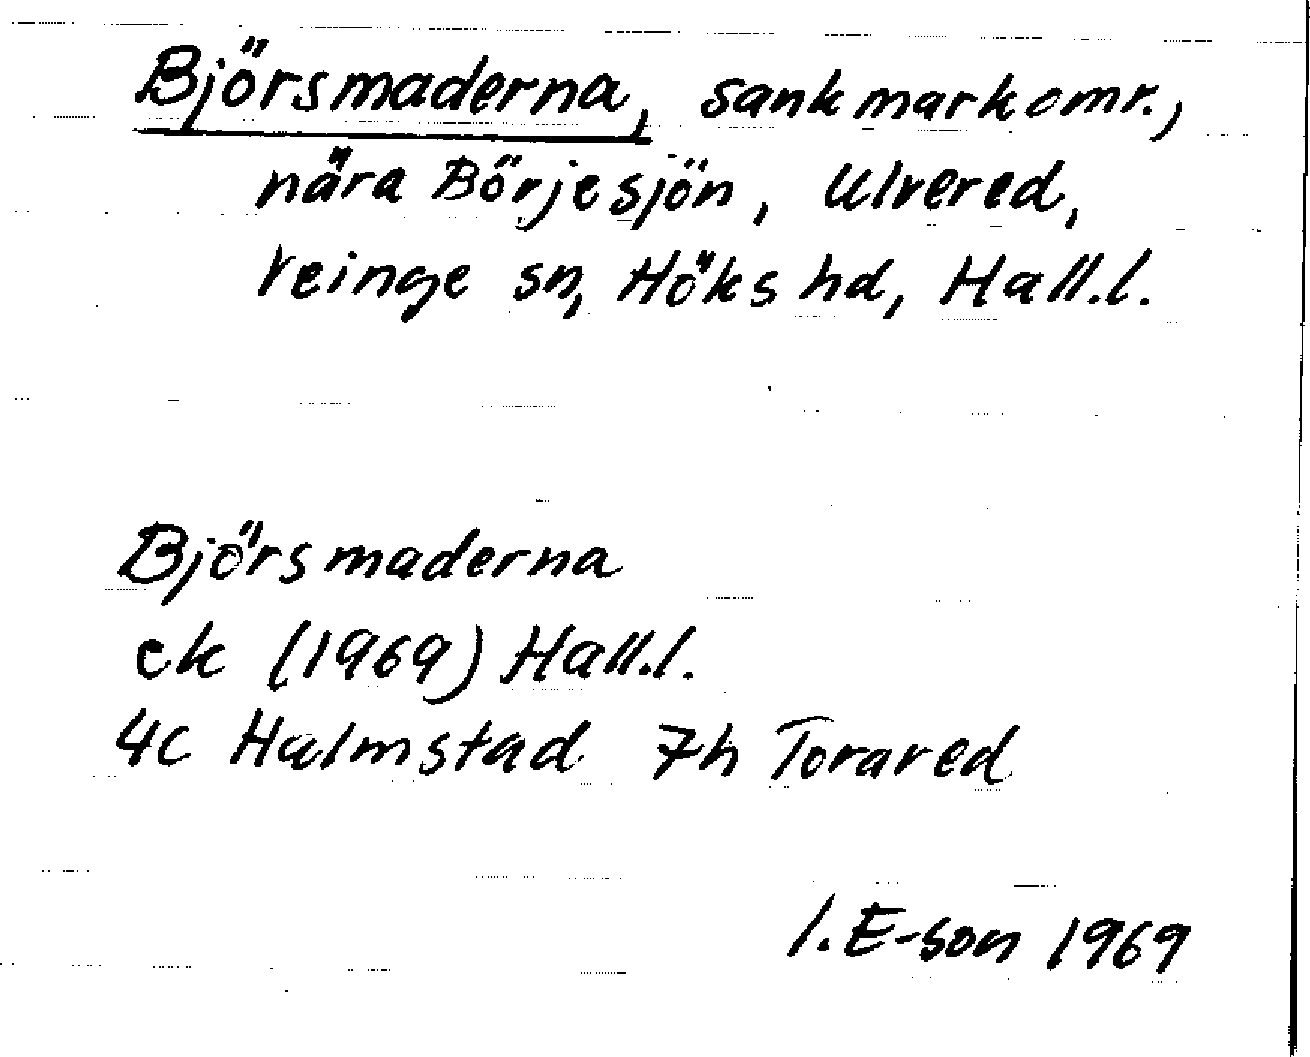 Björsmaderna, sankmarkomr.,
nära Börjesjön, Ulvered,
Veinge sn, Höks hd, Hall.l.
Björsmaderna
ek (1969) Hall.l.
4C Halmstad 7h Torared
I. E-son 1969